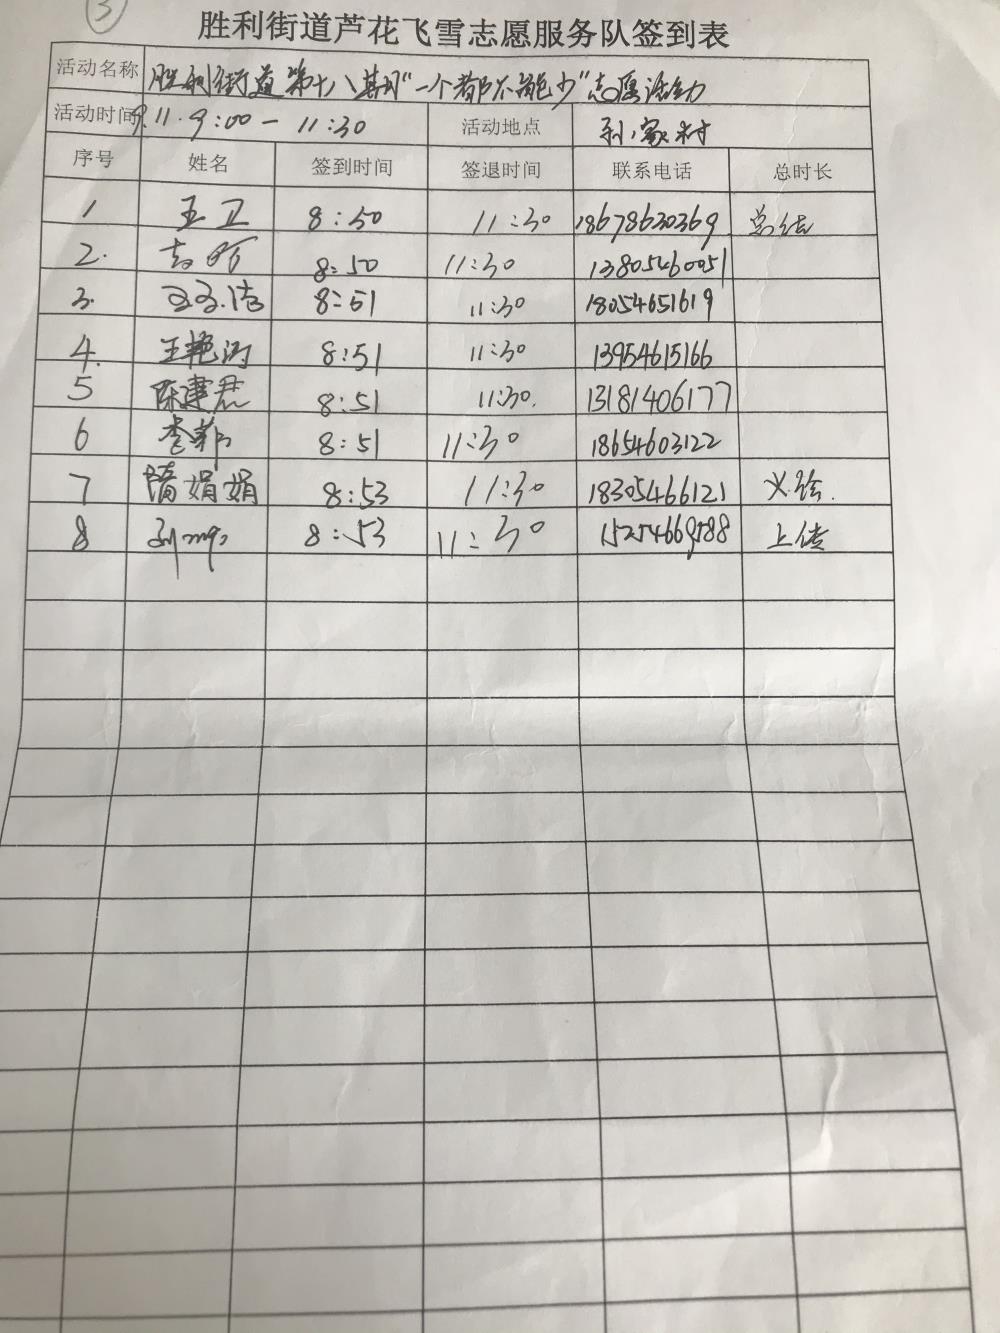 3
胜利街道芦花飞雪志愿服务队签到表
活动名称 胜利街道第十八期“一个都不能少”志愿活动
活动时间 9.11.9:00-11:30 活动地点 孙家村
序号 姓名 签到时间 签退时间 联系电话 总时长
1 王卫 8:50 11:30 18678630369 总结
2. 8:50 11:30 13805460051
3. 8:51 11:30 18054651619
4. 王艳 8:51 11:30 13954615166
5 陈建君 8:51 11:30. 13181406177
6 李 8:51 11:30 18654603122
7 隋娟娟 8:53 11:30 18305466121 义绘.
8 8:53 11:30 上传